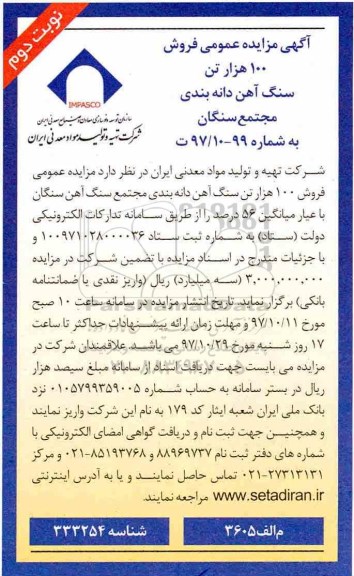 نوبت دوم
آگهی مزایده عمومی فروش
۱۰۰ هزار تن
سنگ آهن دانه بندی
مجتمع سنگان
به شماره ۹۹-۹۷/۱۰ ت
IMPASCO
سازمان توسعه و نوسازی معادن و صنایع معدنی ایران
شرکت تهیه و تولید مواد معدنی ایران
شرکت تهیه و تولید مواد معدنی ایران در نظر دارد مزایده عمومی
فروش ۱۰۰ هزار تن سنگ آهن دانه بندی مجتمع سنگ آهن سنگان
با عیار میانگین ۵۶ درصد را از طریق سامانه تدارکات الکترونیکی
دولت (ستاد) به شماره ثبت ستاد ۱۰۰۹۷۱۰۲۸۰۰۰۰۳۶ و
با جزئیات مندرج در اسناد مزایده با تضمین شرکت در مزایده
۳،۰۰۰،۰۰۰،۰۰۰ (سه میلیارد) ریال (واریز نقدی یا ضمانتنامه
بانکی) برگزار نماید. تاریخ انتشار مزایده در سامانه ساعت ۱۰ صبح
مورخ ۹۷/۱۰/۱۱ و مهلت زمان ارائه پیشنهادات حداکثر تا ساعت
۱۷ روز شنبه مورخ ۹۷/۱۰/۲۹ می باشد. علاقمندان شرکت در
مزایده می بایست جهت دریافت اسناد از سامانه مبلغ سیصد هزار
ریال در بستر سامانه به حساب شماره ۰۱۰۵۷۹۹۳۵۹۰۰۵ نزد
بانک ملی ایران شعبه ایثار کد ۱۷۹ به نام این شرکت واریز نمایند
و همچنین جهت ثبت نام و دریافت گواهی امضای الکترونیکی با
شماره های دفتر ثبت نام ۸۸۹۶۹۷۳۷ و ۸۵۱۹۳۷۶۸-۰۲۱ و مرکز
۰۲۱-۲۷۳۱۳۱۳۱ تماس حاصل نمایند و یا به آدرس اینترنتی
www.setadiran.ir مراجعه نمایند.
م الف ۳۶۰۵
شناسه ۳۳۳۲۵۴